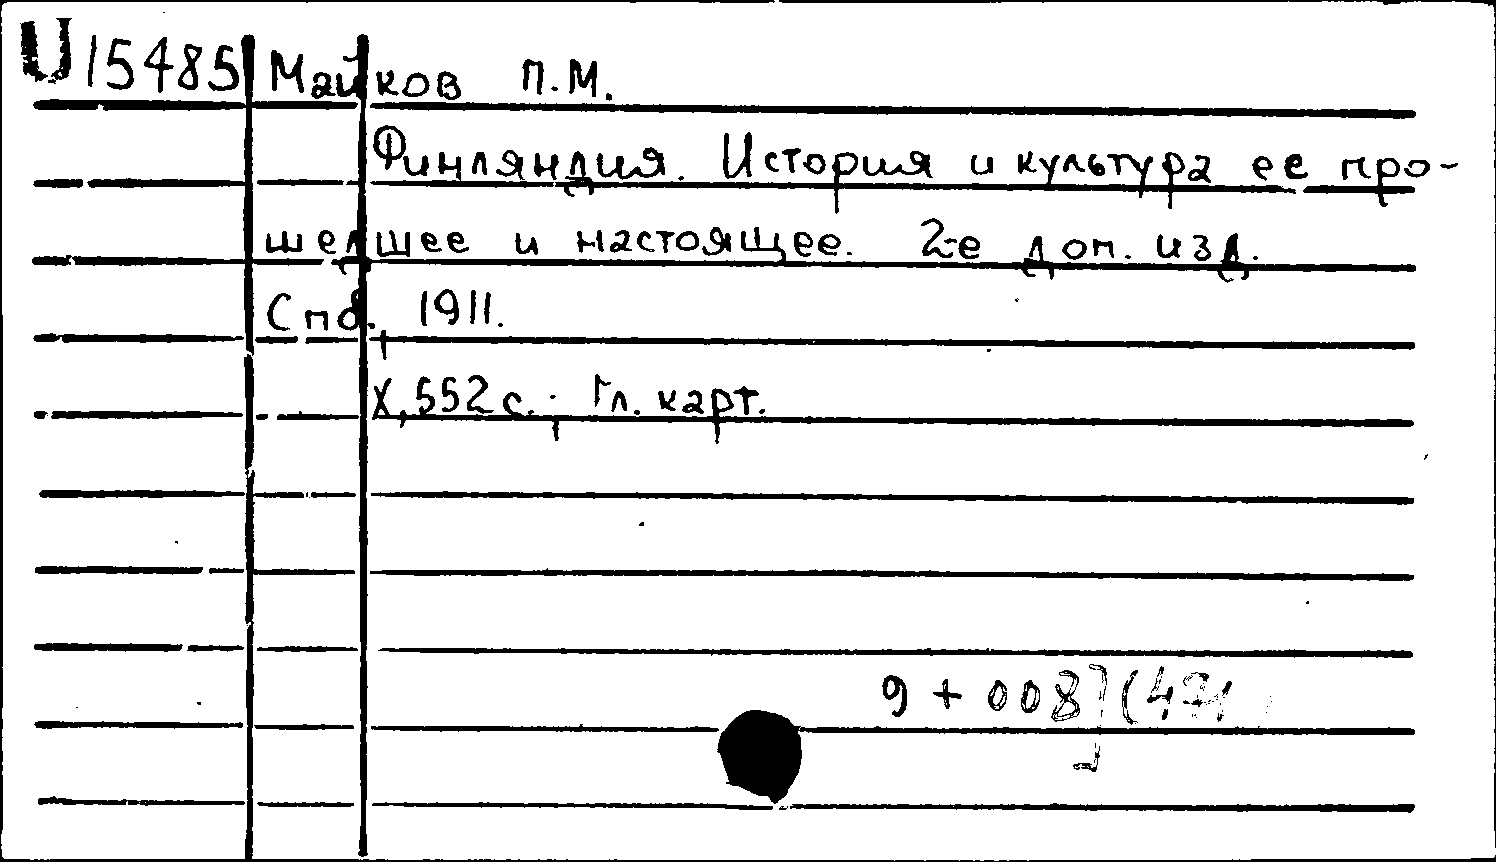 U 15485 Майков П.М.
Финляндия. История и культура ее про-
шедшее и настоящее. 2-е доп. изд.
Спб., 1911.
X, 552 с.; 1 л. карт.
9 + 008] (47)